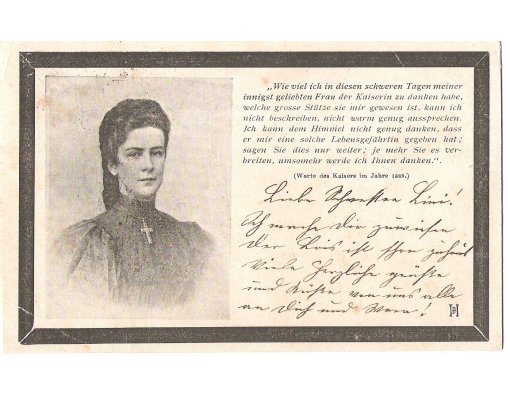 „Wie viel ich in diesen schweren Tagen meiner
innigst geliebten Frau der Kaiserin zu danken habe,
welche grosse Stütze sie mir gewesen ist, kann ich
nicht beschreiben, nicht warm genug aussprechen.
Ich kann dem Himmel nicht genug danken, dass
er mir eine solche Lebensgefährtin gegeben hat;
sagen Sie dies nur weiter; je mehr Sie es ver-
breiten, umsomehr werde ich Ihnen danken.“.
(Worte des Kaisers im Jahre 1889.)
Liebe Schwester Lini!
Ich mache Dir zu wissen
der Lois ist schon zuhaus
Viele Herzliche grüße
und Küße von uns alle
an Dich und